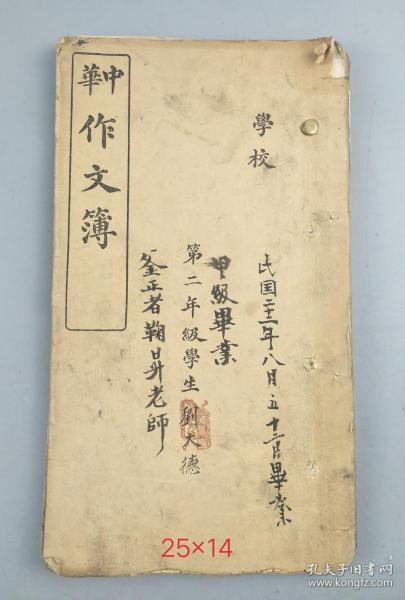 中華
作文簿
民国年八月五十畢業
學校
甲級畢業
第二年級學生劉大德
正者鞠昇老師
25×14
孔夫子旧书网
www.kongfz.com